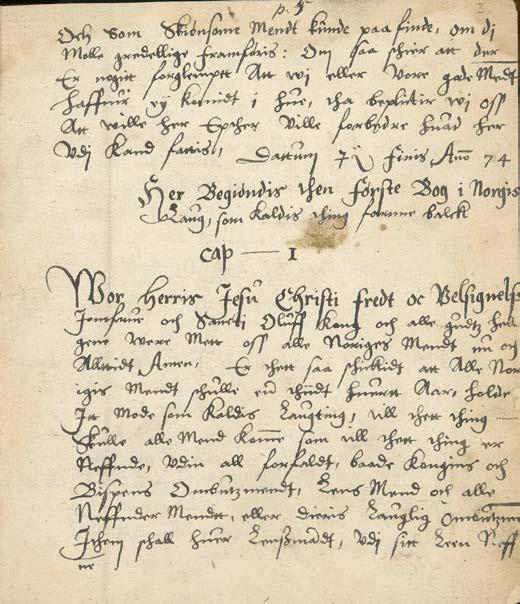 p. 5
Och som skiönsome Mendt kunde paa finde, om di
Molle gredellige framföris: Om saa scheer att der
Er nogitt forglemptt Att wi eller vore gode Mendt
haffuur ey komidt i hue, tha beplictir wi oss
Att wille her Epther ville forbedre huad her
Vdj Kand fattis, Dattum Finis Anno 74
Her Begiondis then förste Bog i Norgis
Laug, som kaldis thing farinne balck
cap — 1
Wor herris Jesu Christi fredt oc Velsignelse
Jomfrue och Sancti Oluff kong och alle gudtz hel
gene were Mett oss alle Noriges Mendt nu och
Alltidt, Amen, Er thett saa schickidt att Alle Nor
igis Mendt schulle en thiidt huertt Aar, holde
Itt Mode som kaldis Laugting, till thett thing
Skulle alle Mend komme som till thett thing er
Neffnde, vdin all forfaldt, baade kongins och
Bispens Ombutzmendt, Lens Mend och alle
Neffnder Mendtt, eller dieris Lauglig ombutzme
Ithem schall huer Lenßmadt, vdj sitt Leen Neff
ne